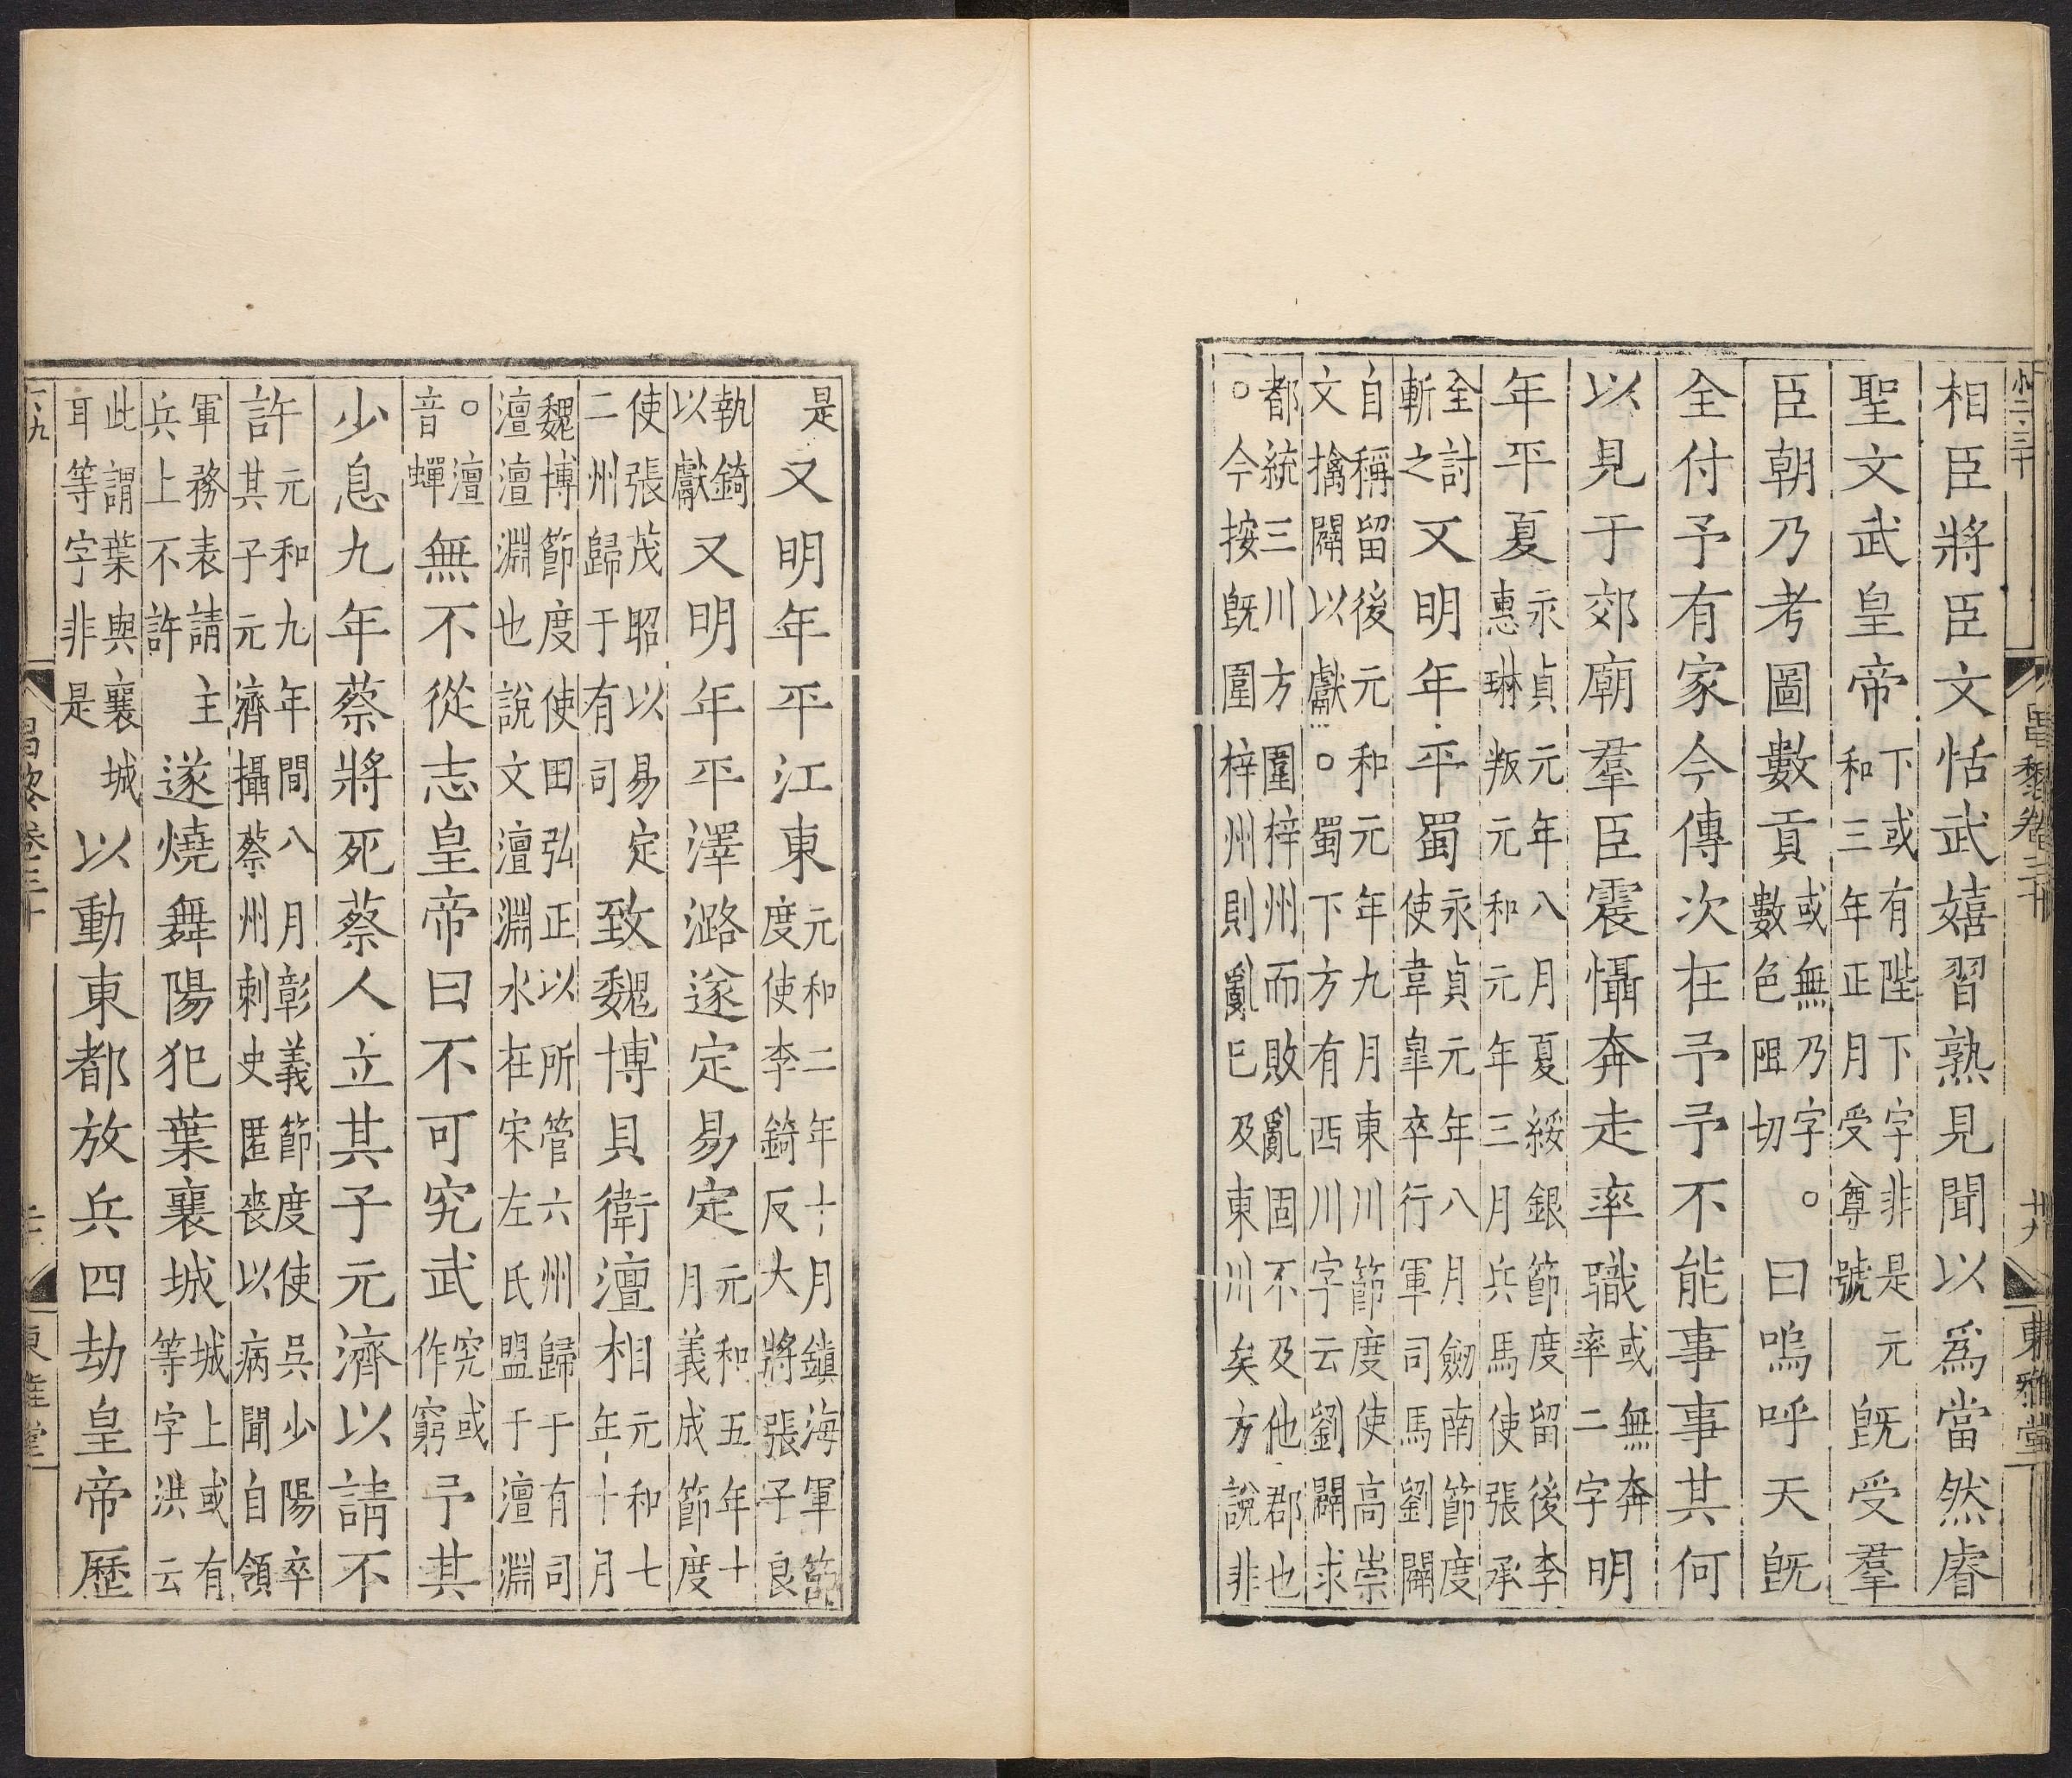 相臣將臣文恬武嬉習熟見聞以爲當然睿
聖文武皇帝下或有陛下字非是元和三年正月受尊號旣受羣
臣朝乃考圖數貢或無乃字。數色阻切曰嗚呼天旣
全付予有家今傳次在予予不能事事其何
以見于郊廟羣臣震懾奔走率職或無奔率二字明
年平夏永貞元年八月夏綏銀節度留後李惠琳叛元和元年三月兵馬使張承
全討斬之又明年平蜀永貞元年八月劒南節度使韋臯卒行軍司馬劉闢
自稱留後元和元年九月東川節度使高崇文擒闢以獻。蜀下方有西川字云劉闢求
都統三川方圍梓州而敗亂固不及他郡也。今按旣圍梓州則亂已及東川矣方說非
是又明年平江東元和二年十月鎮海軍節度使李錡反大將張子良
執錡以獻又明年平澤潞遂定易定元和五年十月義成節度
使張茂昭以易定二州歸于有司致魏博貝衛澶相元和七年十月
魏博節度使田弘正以所管六州歸于有司澶澶淵也說文澶淵水在宋左氏盟于澶淵
。澶音蟬無不從志皇帝曰不可究武究或作窮予其
少息九年蔡將死蔡人立其子元濟以請不
許元和九年間八月彰義節度使吳少陽卒其子元濟攝蔡州刺史匿喪以病聞自領
軍務表請主兵上不許遂燒舞陽犯葉襄城城上或有等字洪云
此謂葉與襄城耳等字非是以動東都放兵四劫皇帝歷
昌黎卷三十
廿九
東雅堂
昌黎卷三十
東雅堂